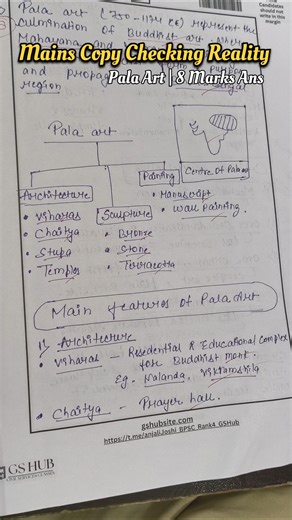 Candidates
should not
write in this
margin
Pala art (750-1174 CE) represent the
culmination of Buddhist art where
Mahayana and
Mains Copy Checking Reality
Pala Art | 8 Marks Ans
and propag
region
Pala art
Architecture
Sculpture
Painting
Centre of Pala art
• Viharas
• Chaitya
• Stupa
• Temples
• Bronze
• Stone
• Terracotta
• Manuscript
• Wall Painting.
Main features of Pala Art
1) Architecture
• Viharas - Residential & Educational Complex
for Buddhist monk.
Eg. Nalanda, Vikramshila
• Chaitya - Prayer hall.
gshubsite.com
https://t.me/anjaliJoshi_BPSC_Rank4_GSHub
GS HUB
CIVIL SERVICES CLASSES